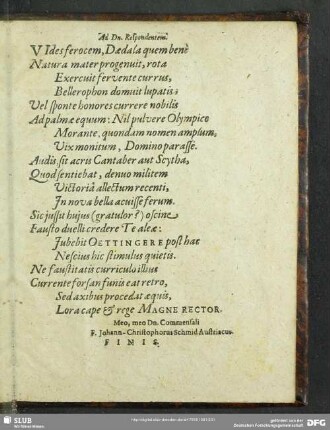 Ad Dn. Respondentem.
VIdes ferocem, Dædala quem benè
Natura mater progenuit, rota
Exercuit fervente currus,
Bellerophon domuit lupatis:
Vel sponte honores currere nobilis
Ad palmæ equum: Nil pulvere Olympico
Morante, quondam nomen amplum,
Vix monitum, Domino parasse.
Audis, sit acris Cantaber aut Scytha,
Quod sentiebat, denuo militem
Victoriâ allectum recenti,
In nova bella acuisse ferum.
Sic jussit hujus (gratulor?) oscine
Fausto duelli credere Te aleæ:
Jubebit OETTINGERE post hac
Nescius hic stimulus quietis.
Ne faustitatis curriculo illius
Currente forsan funis eat retro,
Sed axibus procedat æquis,
Lora cape & rege MAGNE RECTOR.
Meo, meo Dn. Commensali
F. Johann-Christophorus Schmid Austriacus.
FINIS.
SLUB
Wir führen Wissen.
gefördert von der
Deutschen Forschungsgemeinschaft
DFG